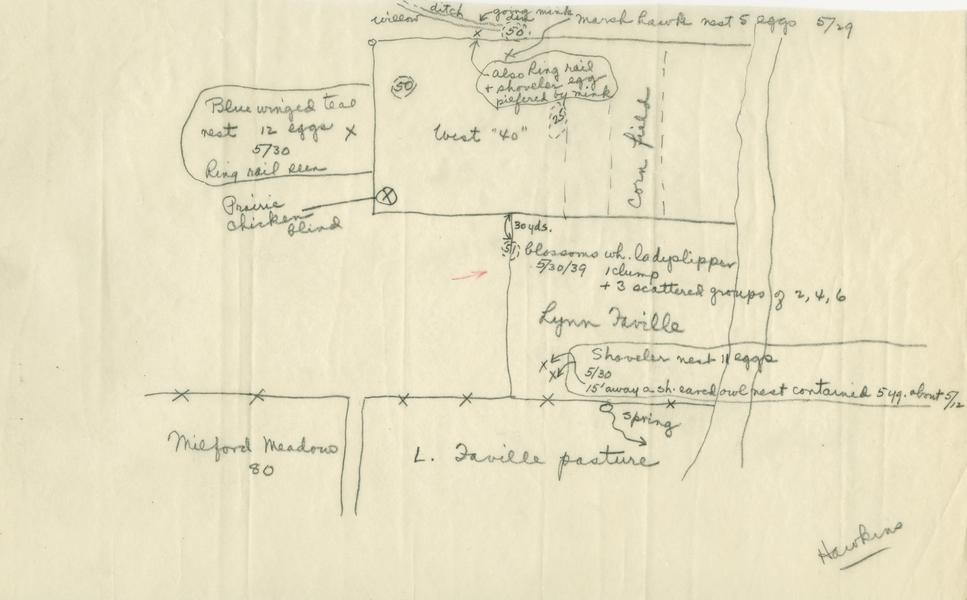 willow
ditch
going mink
den
50
marsh hawk nest 5 eggs 5/29
also King rail
+ shoveler egg
pilfered by mink
50
25
Blue winged teal
nest 12 eggs
5/30
King rail seen
West "40"
corn field
Prairie
chicken
blind
30 yds.
51 blossoms wh. ladyslipper
5/30/39 1 clump
+ 3 scattered groups of 2, 4, 6
Lynn Faville
Shoveler nest 11 eggs
5/30
15' away a sh. eared owl nest contained 5 yg. about 5/12
spring
Milford Meadows
80
L. Faville pasture
Hawkins